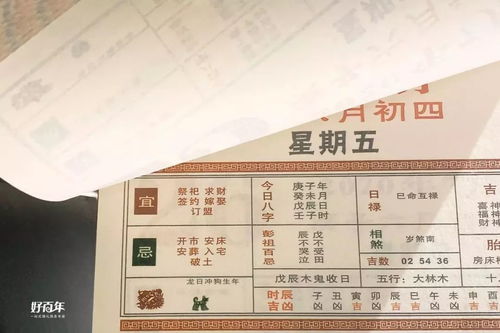 月初四
星期五
宜
祭祀 求财
签约 嫁娶
订盟
今日八字
庚子年
癸未月
戊辰日
壬子时
日禄
巳命互禄
吉
喜神
福神
财神
忌
开市 安床
安葬 入宅
破土
彭祖百忌
辰戊
不不
哭受
泣田
相煞
岁煞南
吉数
02 54 36
胎
房床
龙日冲狗生年
戊辰木鬼收日
五行：大林木
时辰
吉凶
子 丑 寅 卯 辰 巳 午 未 申 酉
好百年